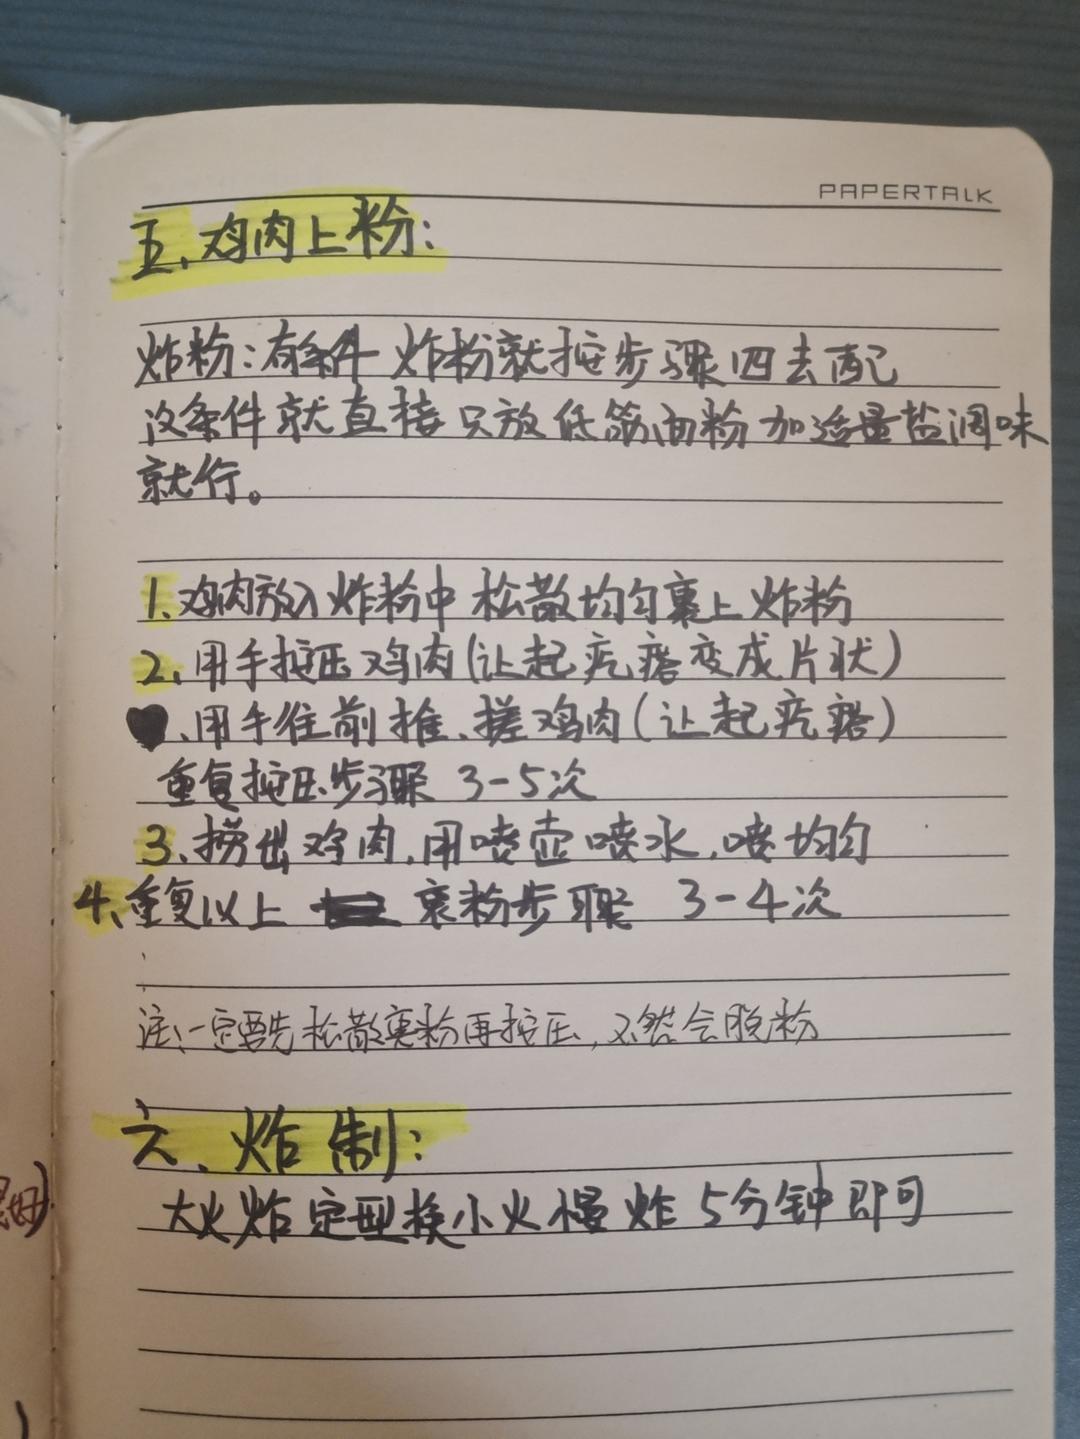 PAPERTALK
五、鸡肉上粉:
炸粉:有条件 炸粉就按步骤四去配
没条件就直接只放低筋面粉加适量盐调味
就行。
1、鸡肉放入炸粉中松散均匀裹上炸粉
2、用手按压鸡肉(让起疙瘩变成片状)
、用手往前推、搓鸡肉(让起疙瘩)
重复按压步骤 3-5次
3、捞出鸡肉,用喷壶喷水,喷均匀
4、重复以上 裹粉步骤 3-4次
注:一定要先松散裹粉再按压,不然会脱粉
六、炸制:
大火炸定型换小火慢炸5分钟即可